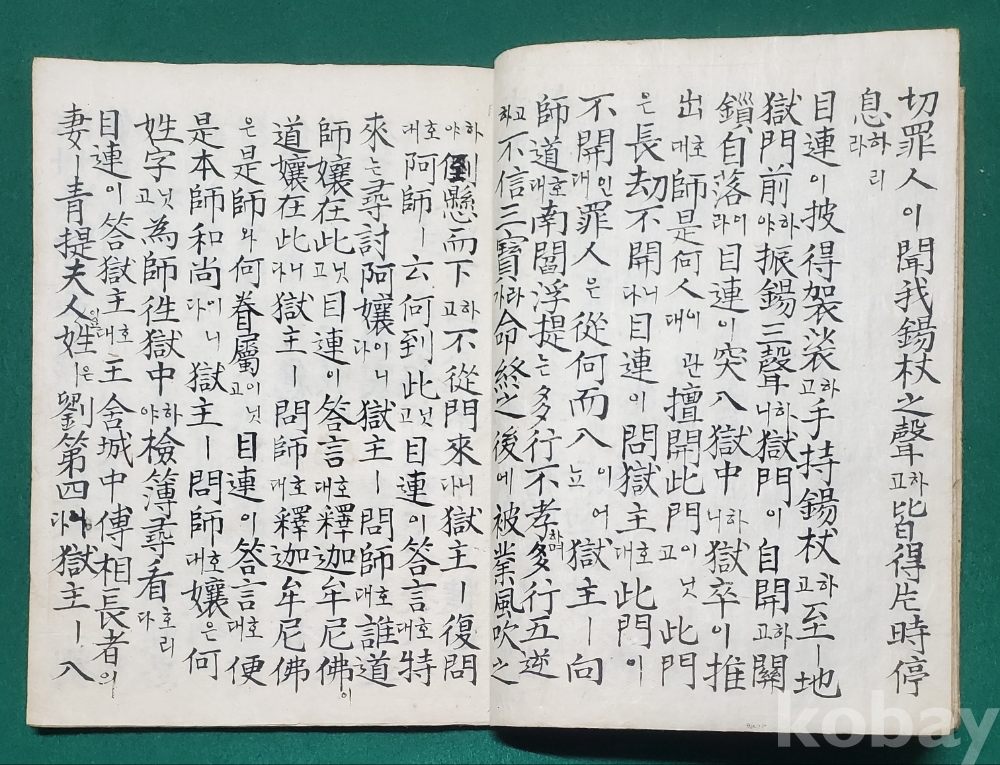 切罪人이聞我錫杖之聲하고皆得片時停
息하리라
目連이披得袈裟하고手持錫杖하고至ㅣ地
獄門前하야振錫三聲하니獄門이自開하고關
鎖自落이라目連이突入獄中하니獄卒이推
出호대師是何人이관대擅開此門이닛고此門
은長劫不開니다目連이問獄主호대此門이
不開인대罪人은從何而入이어뇨獄主ㅣ向
師道호대南閻浮提는多行不孝하며多行五逆
하고不信三寶라가命終之後에被業風吹之
하야倒懸而下하고不從門來니다獄主ㅣ復問
호대阿師ㅣ云何到此닛고目連이答言호대特
來는尋討阿孃이니다獄主ㅣ問師호대誰道
師孃在此닛고目連이答言호대釋迦牟尼佛이
道孃在此니다獄主ㅣ問師호대釋迦牟尼佛
은是師와何眷屬이닛고目連이答言호대便
是本師和尚이니다獄主ㅣ問師호대孃은何
姓字닛고為師徃獄中하야檢簿尋看호리다
目連이答獄主호대主舍城中傅相長者의
妻ㅣ青提夫人姓은劉第四니다獄主ㅣ入
kobay